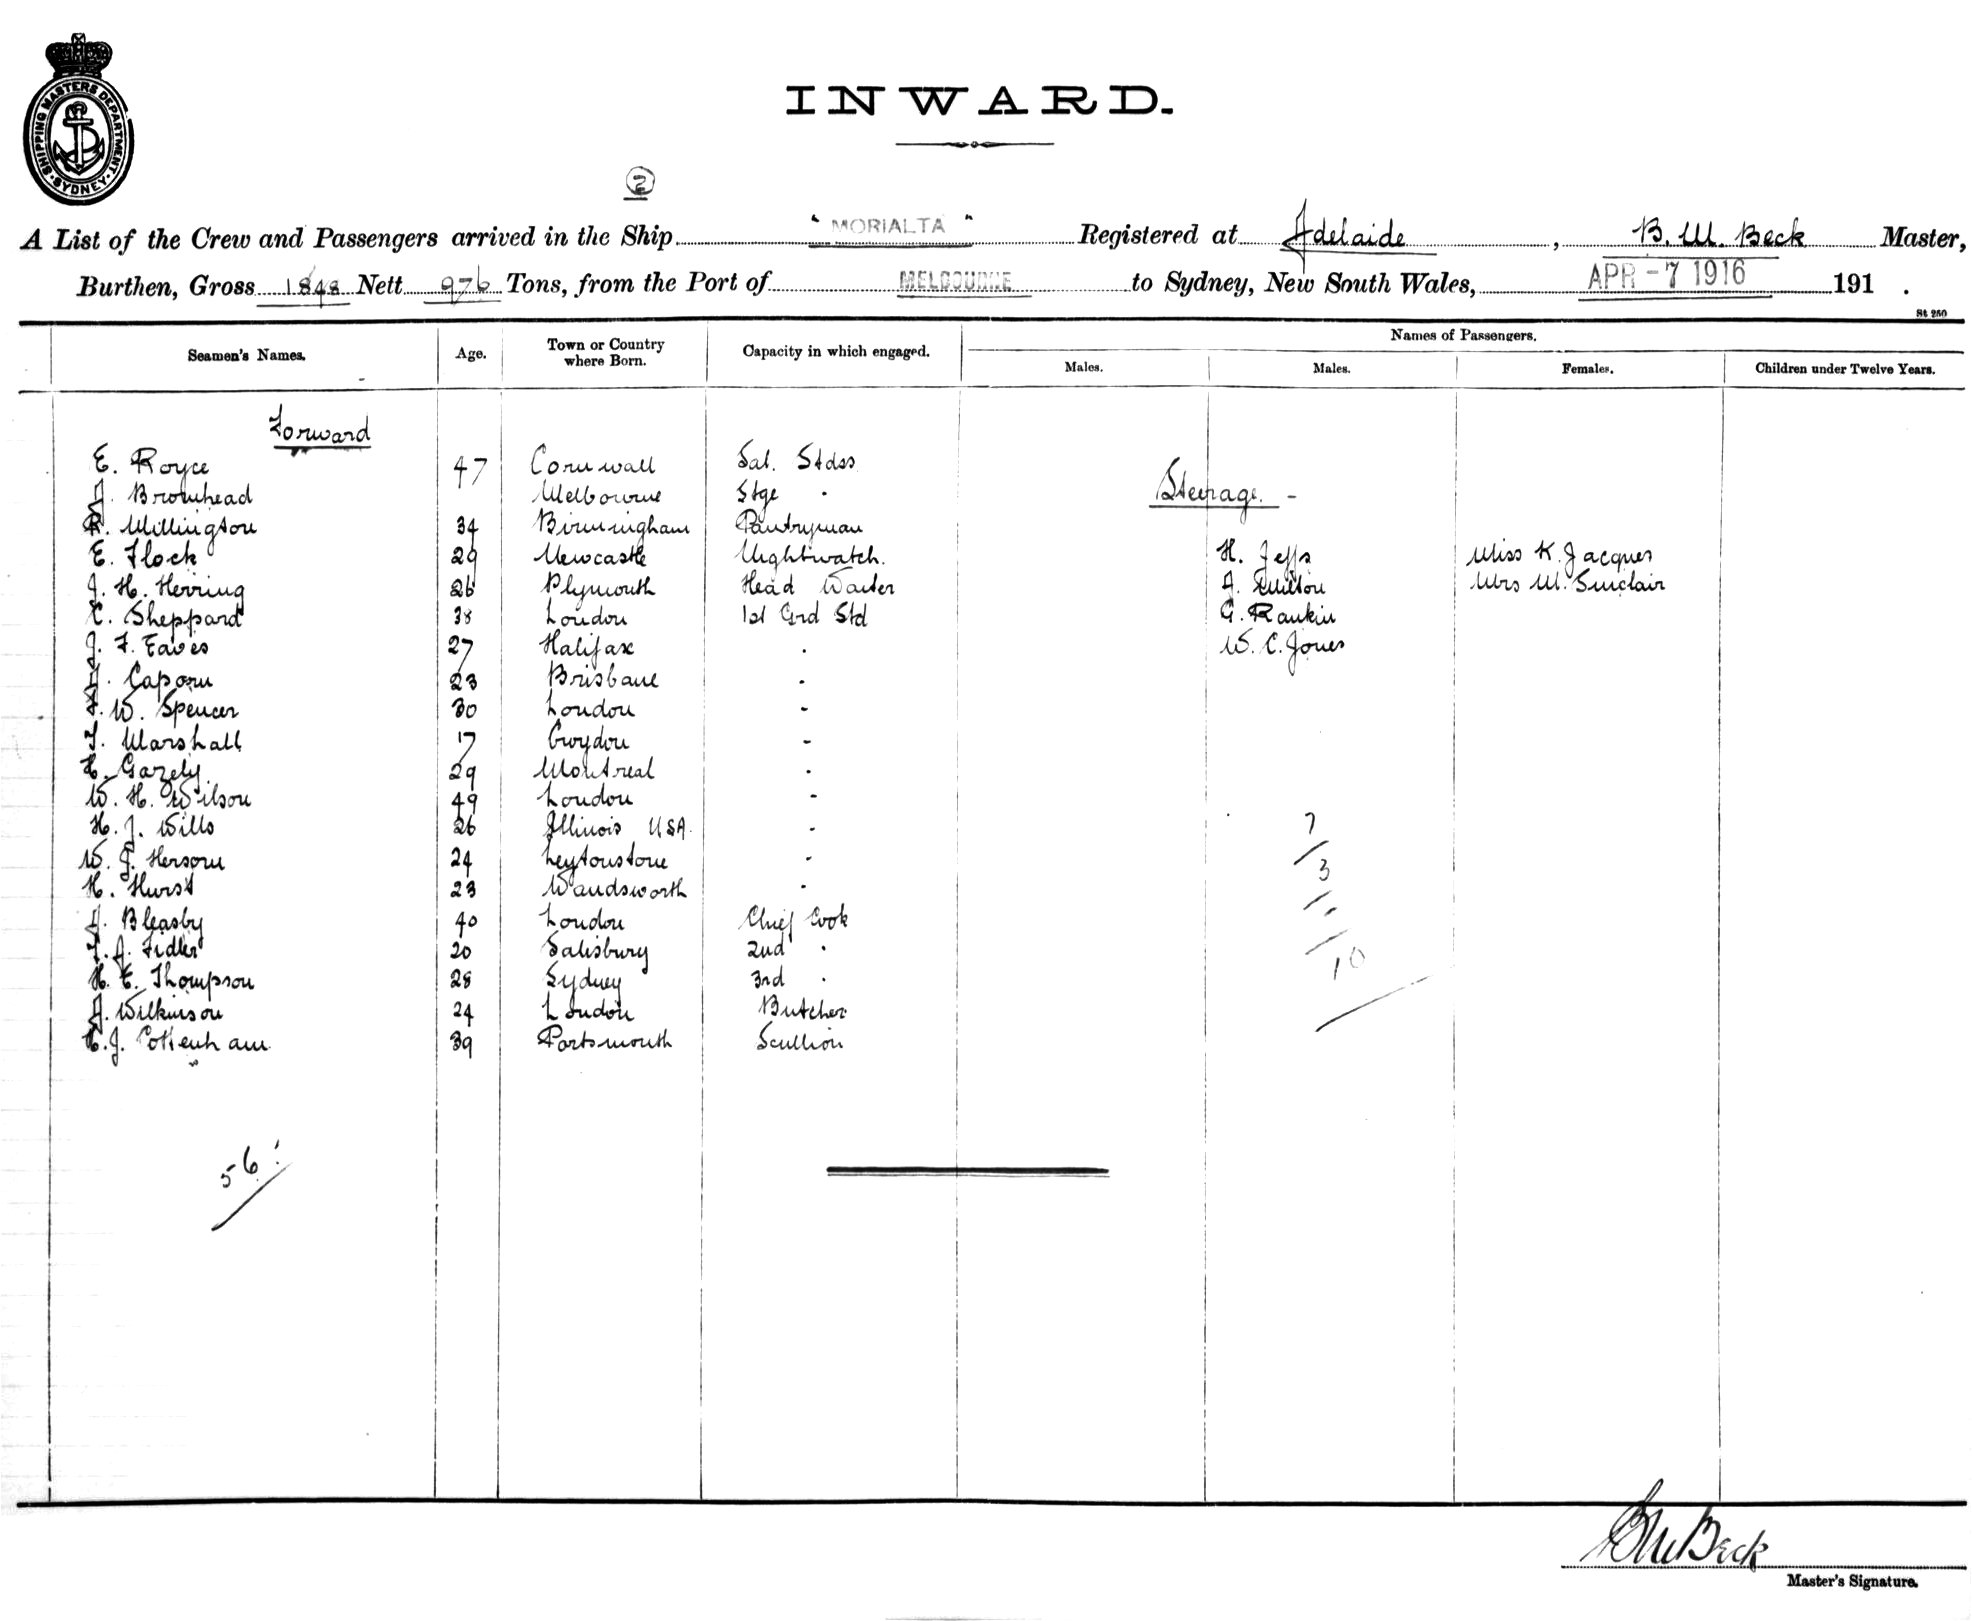 SHIPPING MASTERS DEPARTMENT. SYDNEY.
INWARD.
2
A List of the Crew and Passengers arrived in the Ship "MORIALTA" Registered at Adelaide, B. W. Beck Master,
Burthen, Gross 1848 Nett 976 Tons, from the Port of MELBOURNE to Sydney, New South Wales, APR -7 1916 191 .
St 250
Seamen's Names. Age. Town or Country where Born. Capacity in which engaged. Names of Passengers.
Males. Males. Females. Children under Twelve Years.
Forward
E. Royce 47 Cornwall Sal. Stdss
J. Bromhead Melbourne Stge "
Steerage. -
R. Millington 34 Birmingham Pantryman
E. Flock 29 Newcastle Nightwatch. H. Jeffs Miss K. Jacques
J. H. Herring 26 Plymouth Head Waiter Mrs M. Sinclair
C. Sheppard 38 London 1st Grd Std G. Rankin
J. F. Eaves 27 Halifax " W. C. Jones
Caporn 23 Brisbane "
F. W. Spencer 30 London "
T. Marshall 17 Croydon "
H. Gazely 29 Montreal "
W. H. Wilson 49 London "
H. J. Wills 26 Illinois USA. "
W. J. Hersom 24 Leytonstone "
H. Hurst 23 Wandsworth "
A. Bleasby 40 London Chief Cook
Fidler 20 Salisbury 2nd "
H. E. Thompson 28 Sydney 3rd "
A. Wilkinson 24 London Butcher
H. J. Cottenham 39 Portsmouth Scullion
7
3
10
56
B W Beck
Master's Signature.